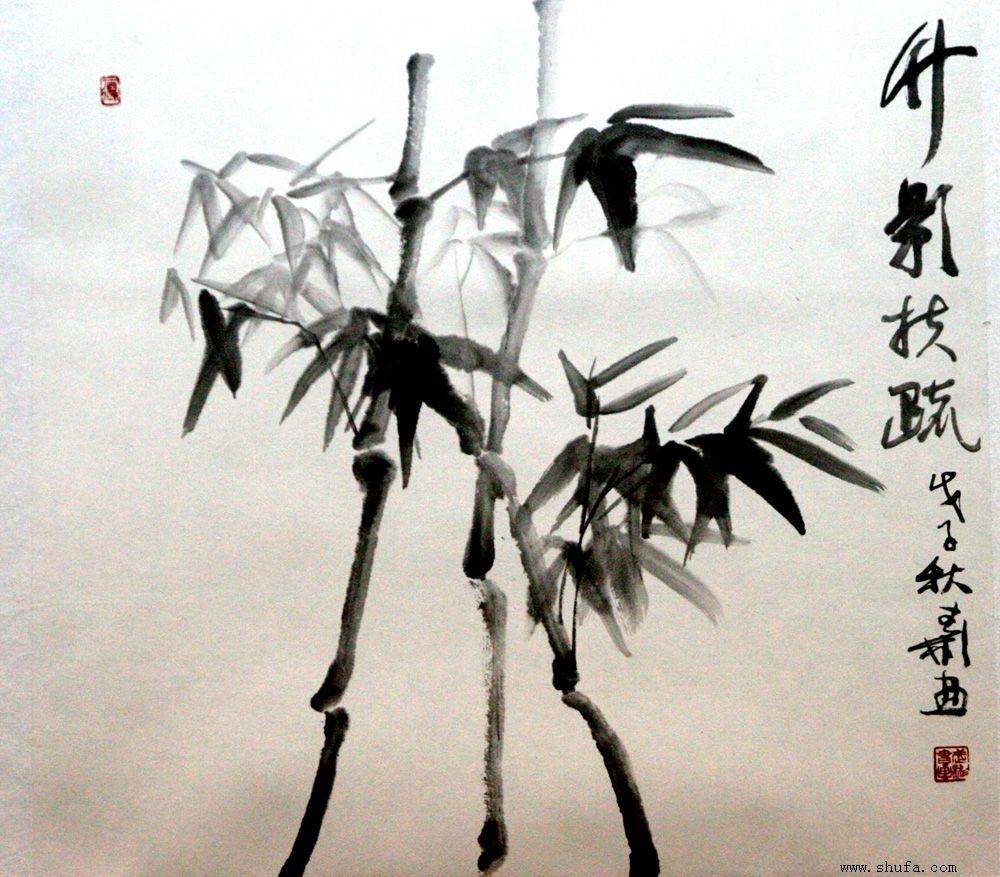 竹影扶疏
戊子秋
www.shufa.com